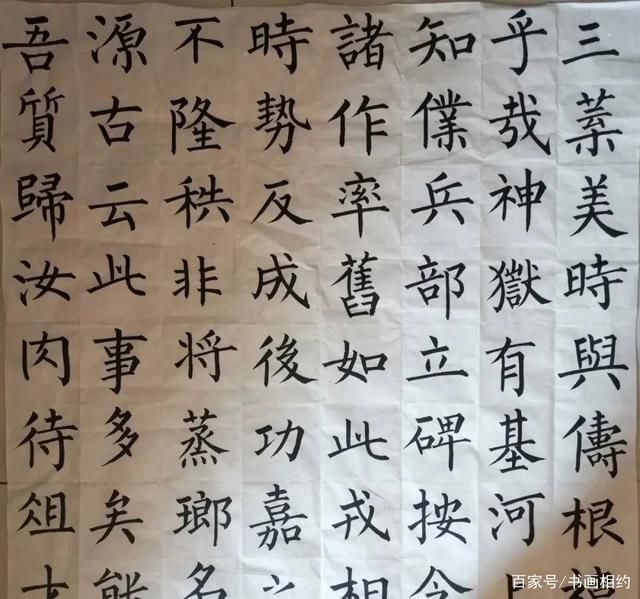 三美時與儔根
乎哉神獄有基河
知僕兵部立碑按令
諸作率舊如此戎相
時勢反成後功嘉
不隆秩非将蒸瑯名
源古云此事多矣能
吾質歸汝肉待俎
百家号/书画相约